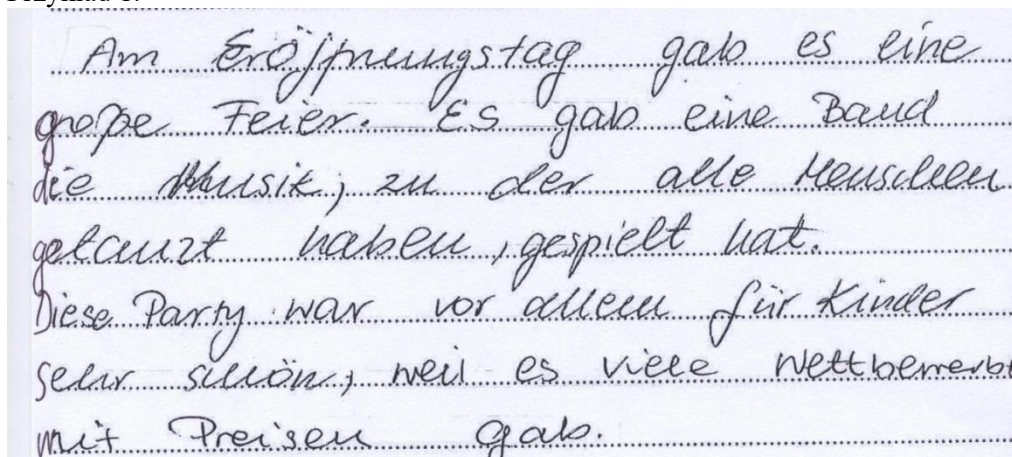 Am Eröffnungstag gab es eine
große Feier. Es gab eine Band
die Musik, zu der alle Menschen
getanzt haben, gespielt hat.
Diese Party war vor allem für Kinder
sehr schön, weil es viele Wettbewerb
mit Preisen gab.